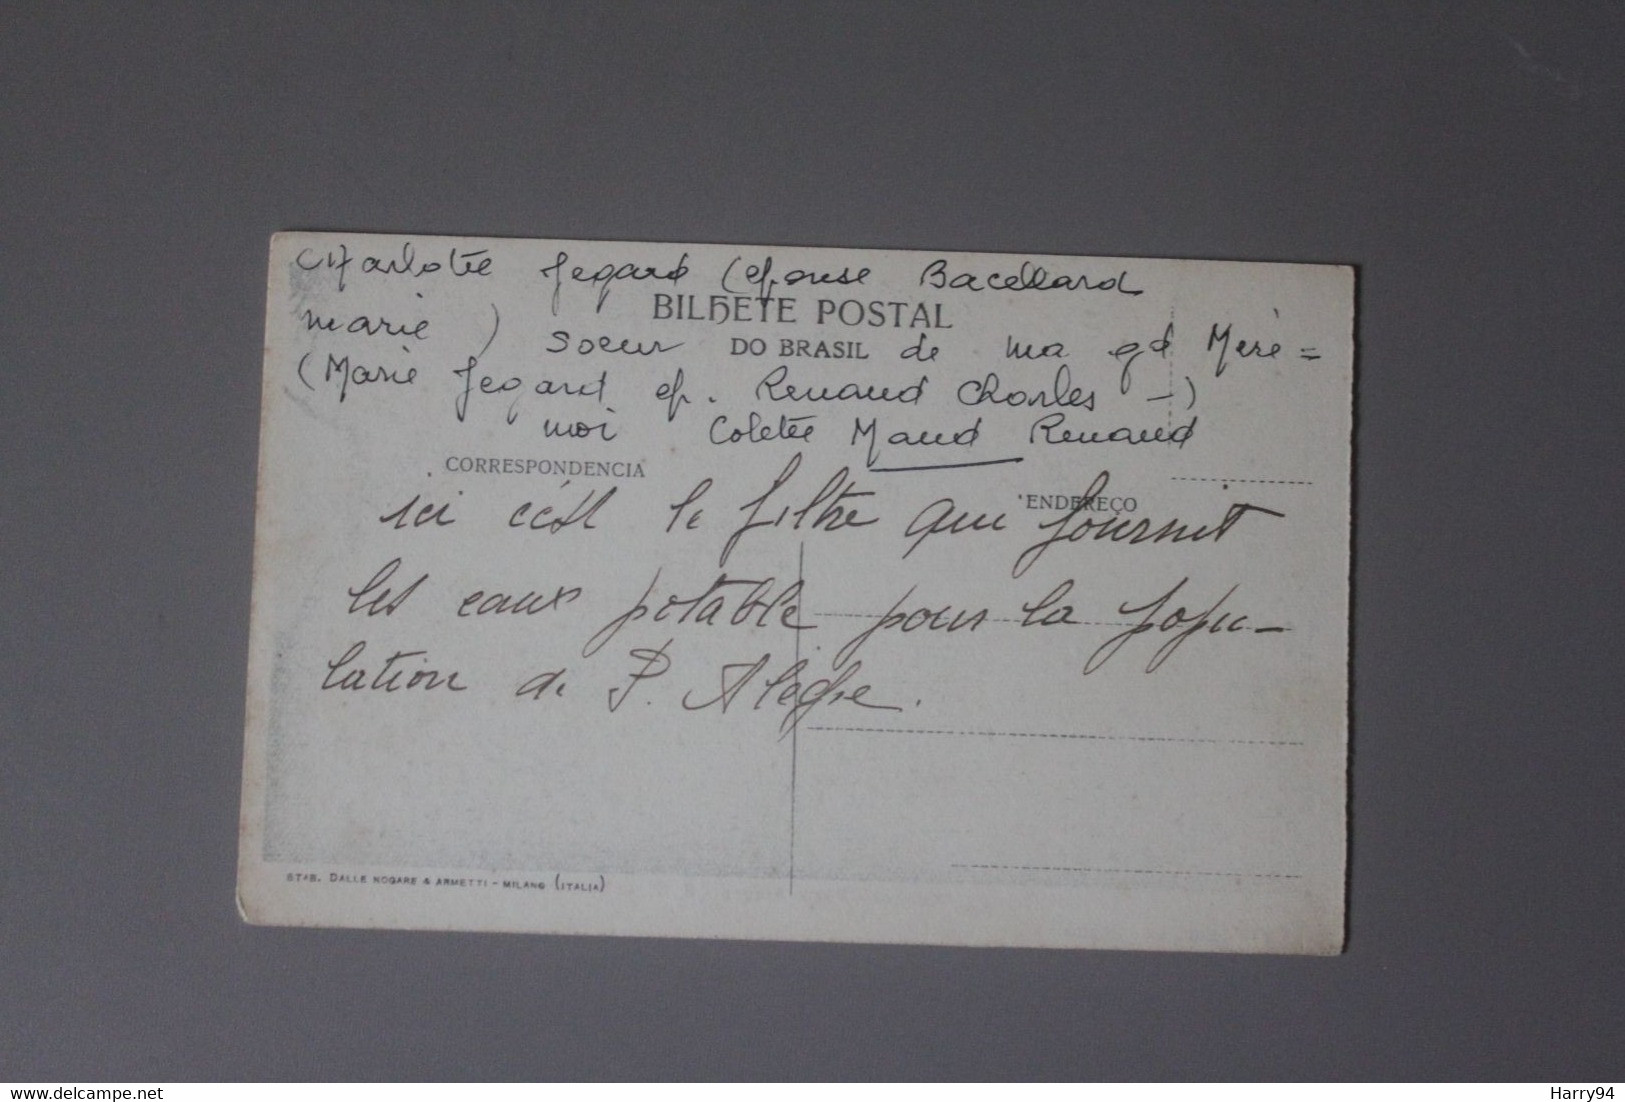 Charlotte Jegard (epouse Bacellard
BILHETE POSTAL
marie) soeur de ma gd Mère =
DO BRASIL
(Marie Jegard ep. Renaud Charles -)
moi Colette Maud Renaud
CORRESPONDENCIA
ENDEREÇO
ici c'est le filtre qui fournit
les eaux potable pour la popu-
lation de P. Alegre.
STAB. DALLE NOGARE & ARMETTI - MILANO (ITALIA)
delcampe.net
Harry94